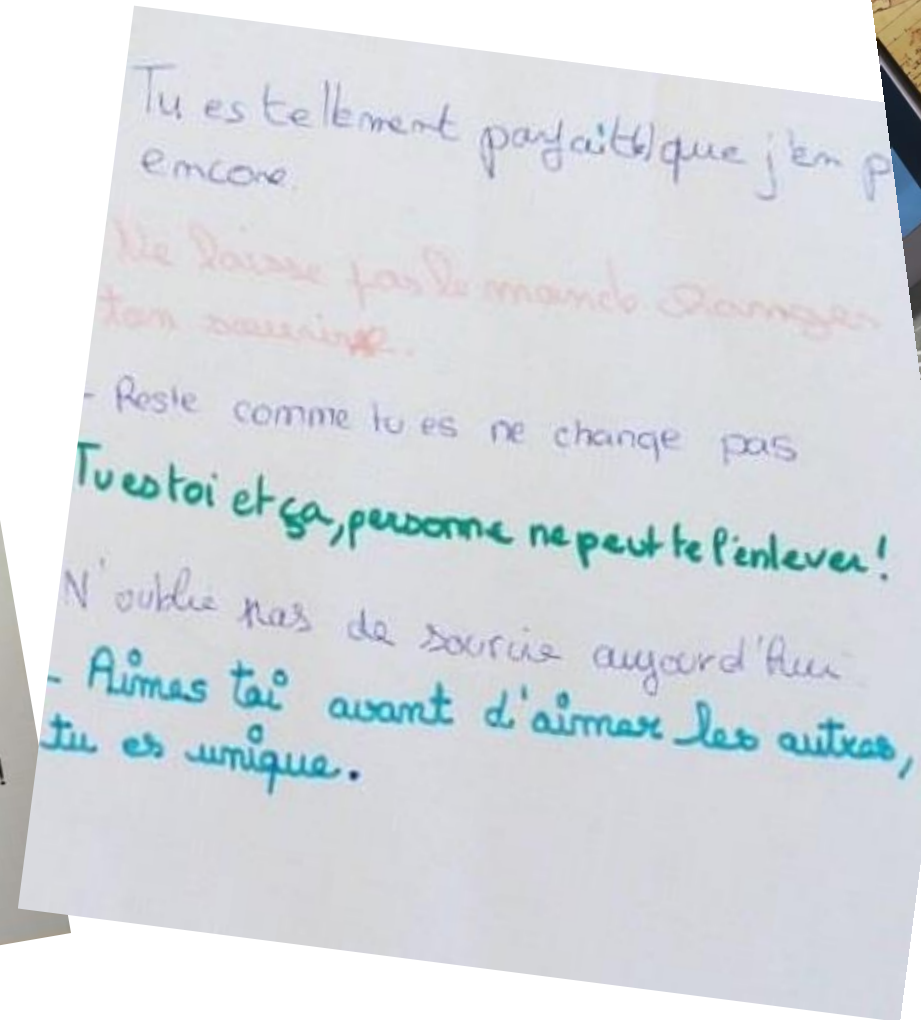 Tu es tellement parfait(e) que j'en
encore.
Ne laisse pas le monde changer
ton sourire.
- Reste comme tu es ne change pas
Tu es toi et ça, personne ne peut te l'enlever!
N'oublie pas de sourire aujourd'hui
- Aimes toi avant d'aimer les autres,
tu es unique.